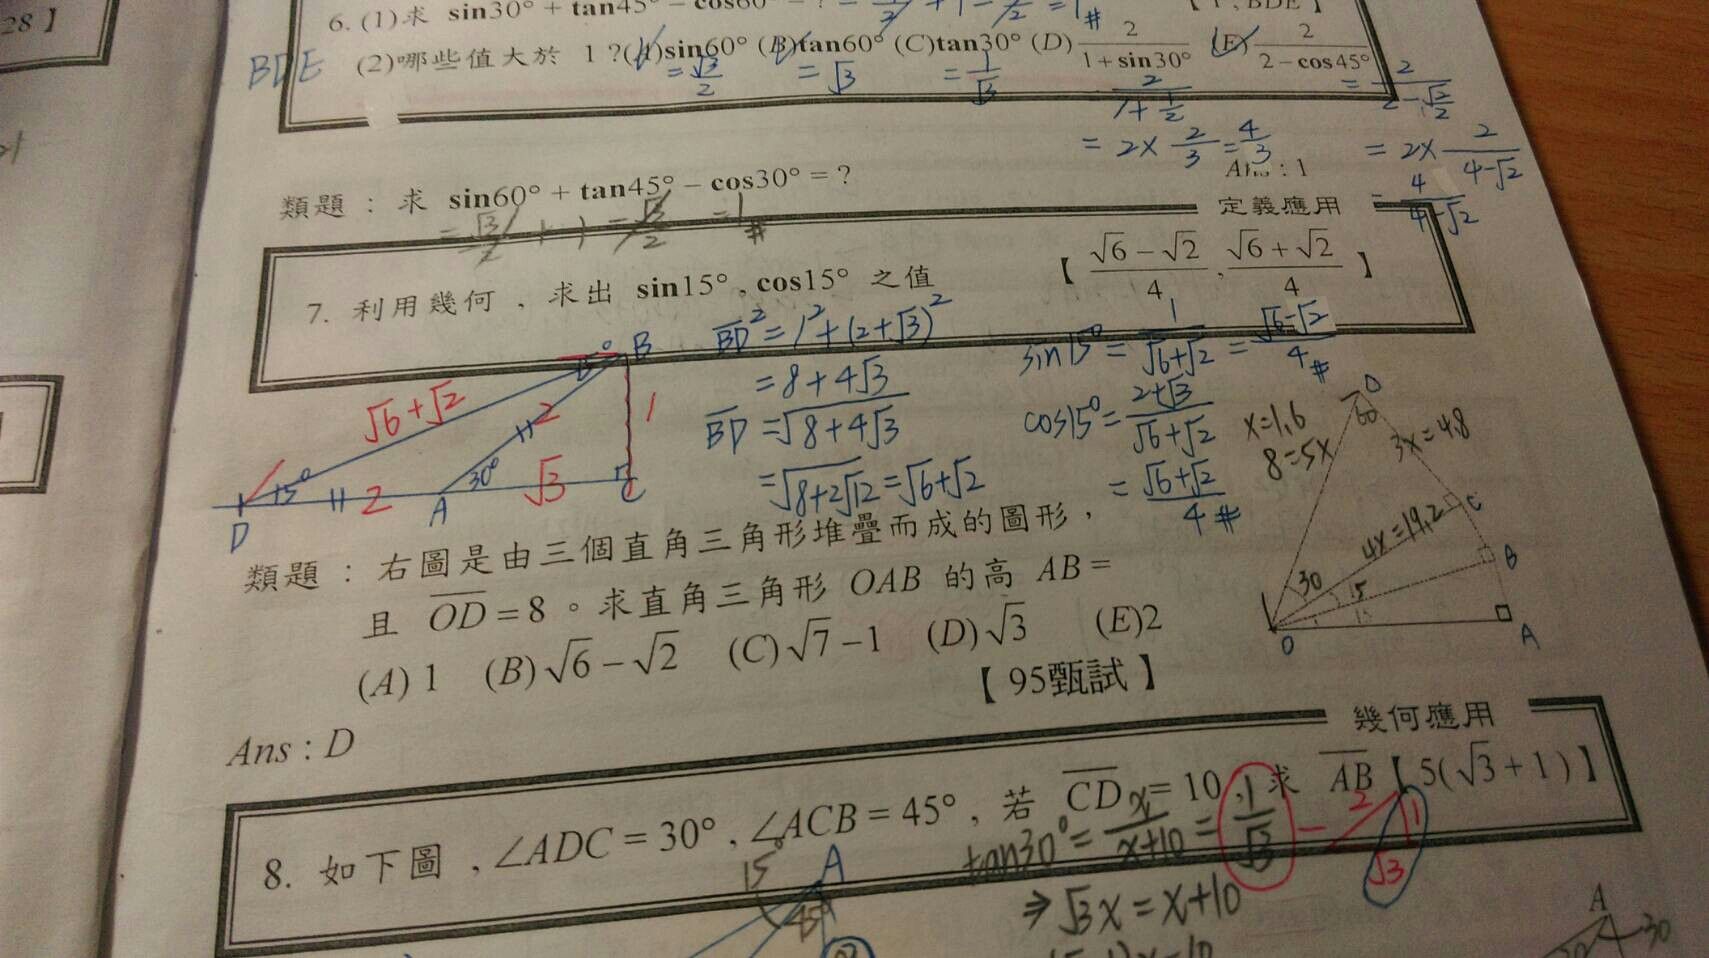 28】
6. (1)求 sin30° + tan45° − cos60° = ? = + 1 − = 1 #
BDE (2)哪些值大於 1 ?(A)sin60° (B)tan60° (C)tan30° (D) 2/(1 + sin30°) (E) 2/(2 − cos45°)
= √3/2 = √3 = 1/√3 2/(1+1/2) = 2/(2−√2/2)
= 2× 2/3 = 4/3 = 2× 2/(4−√2)
= 4/(4−√2)
Ans : 1
類題 : 求 sin60° + tan45° − cos30° = ?
= √3/2 + 1 − √3/2 = 1 #
定義應用
7. 利用幾何 , 求出 sin15° , cos15° 之值 【 (√6 − √2)/4 , (√6 + √2)/4 】
BD² = 1² + (2+√3)²
= 8 + 4√3
BD = √(8+4√3)
= √(8+2√12) = √6+√2
sin15° = 1/(√6+√2) = (√6−√2)/4 #
cos15° = (2+√3)/(√6+√2)
= (√6+√2)/4 #
15° B
√6+√2 2 1
15° 2 30° √3
D A C
x=1.6
8=5x
D
60
3x=4.8
C
4x=19.2
B
30
15
15
O A
類題 : 右圖是由三個直角三角形堆疊而成的圖形,
且 OD = 8 。求直角三角形 OAB 的高 AB =
(A) 1 (B)√6 − √2 (C)√7 − 1 (D)√3 (E)2
【 95甄試 】
Ans : D
幾何應用
8. 如下圖 , ∠ADC = 30° , ∠ACB = 45° , 若 CD = 10 , 求 AB 【 5(√3 + 1) 】
tan30° = x/(x+10) = 1/√3
2 1
√3
⇒ √3x = x+10
15° A
45°
A
30